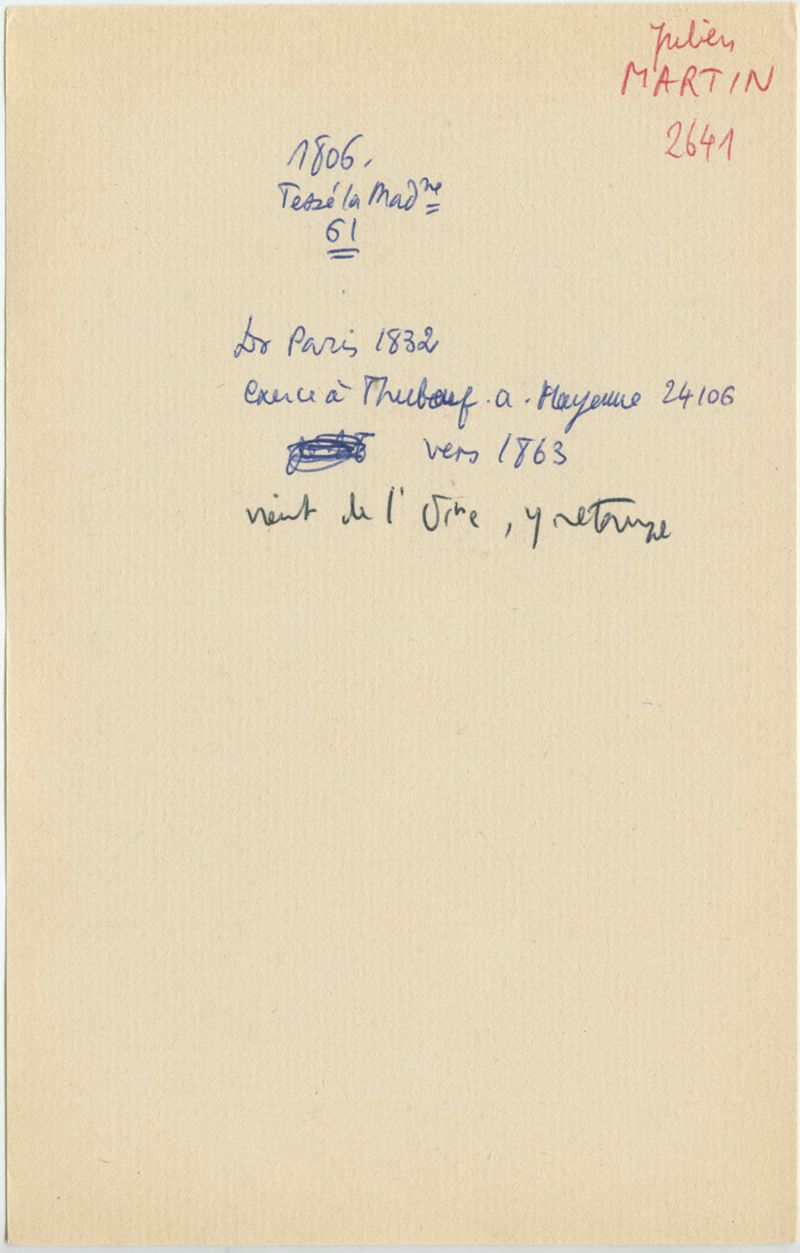 Julien
MARTIN
2641
1806.
Tessé la Madne
61
Dr Paris 1832
exerce à Thuboeuf. a. Mayenne 24106
vers 1863
vient de l'Orne, y retourne